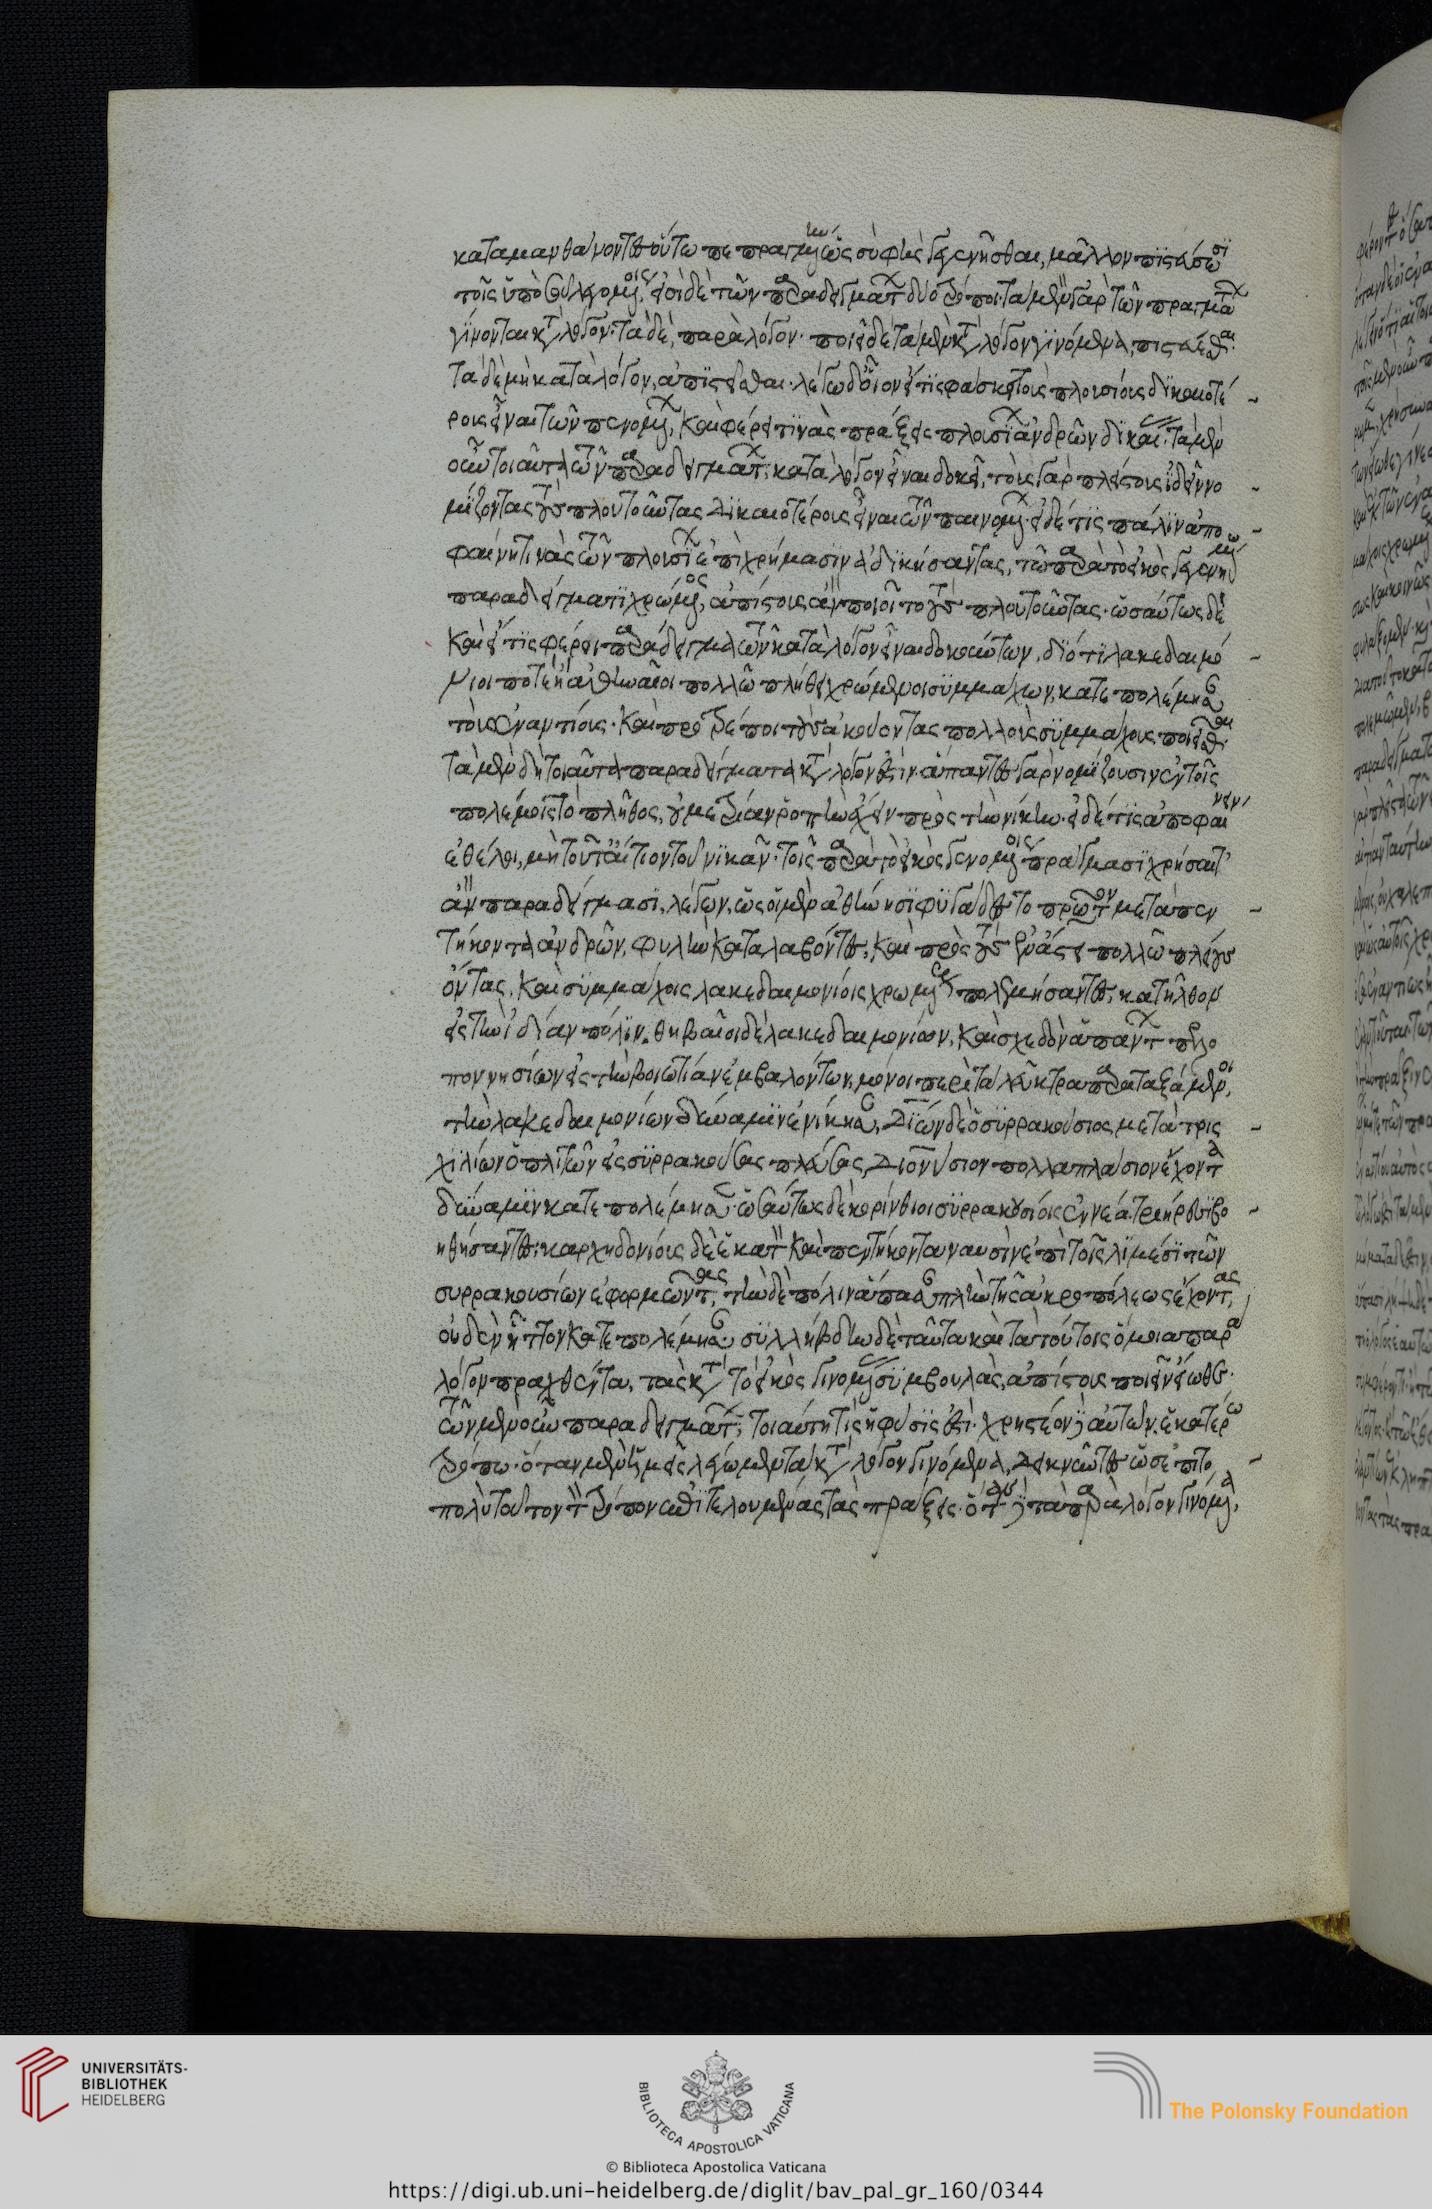 καταμανθάνοντες οὕτω πεπραγμένην ὡς σὺ φὴς γεγενῆσθαι, μᾶλλον πιστεύσωσι
τοῖς ὑπὸ σοῦ λεγομένοις, εἰσὶ δὲ τῶν παραδειγμάτων δύο τρόποι· τὰ μὲν γὰρ τῶν πραγμάτων
γίνονται κατὰ λόγον· τὰ δὲ, παρὰ λόγον· ποιεῖ δὲ τὰ μὲν κατὰ λόγον γινόμενα, πιστεύεσθαι·
τὰ δὲ μὴ κατὰ λόγον, ἀπιστεῖσθαι· λέγω δ' οἷον εἴ τις φάσκει τοὺς πλουσίους δικαιοτέ-
ρους εἶναι τῶν πενομένων, καὶ φέρει τινὰς πράξεις πλουσίων ἀνδρῶν δικαίας· τὰ μὲν
οὖν τοιαῦτα τῶν παραδειγμάτων, κατὰ λόγον εἶναι δοκεῖ, τοὺς γὰρ πλείστους ἰδεῖν νο-
μίζοντας τοὺς πλουτοῦντας δικαιοτέρους εἶναι τῶν πενομένων· εἰ δέ τις πάλιν ἀπο-
φαίνῃ τινὰς τῶν πλουσίων ἐπὶ χρήμασιν ἀδικήσαντας, τῷ παρὰ τὸ εἰκὸς γεγενημένῳ
παραδείγματι χρώμενος, ἀπίστους ἂν ποιοῖτο τοὺς πλουτοῦντας· ὡσαύτως δὲ
καὶ εἴ τις φέροι παράδειγμα τῶν κατὰ λόγον εἶναι δοκούντων, διότι λακεδαιμό-
νιοι ποτὲ ἢ ἀθηναῖοι πολλῷ πλήθει χρώμενοι συμμάχων, κατεπολέμησαν
τοὺς ἐναντίους· καὶ προτρέποι τοὺς ἀκούοντας πολλοὺς συμμάχους ποιεῖσθαι·
τὰ μὲν δὴ τοιαῦτα παραδείγματα κατὰ λόγον ἐστὶν· ἅπαντες γὰρ νομίζουσιν ἐν τοῖς
πολέμοις τὸ πλῆθος, οὐ μετρίαν ῥοπὴν ἔχειν πρὸς τὴν νίκην· εἰ δέ τις ἀποφαίνειν
ἐθέλοι, μὴ τοῦτ' αἴτιον τοῦ νικᾶν· τοῖς παρὰ τὸ εἰκὸς γενομένοις πράγμασι χρήσαιτ'
ἂν παραδείγμασι, λέγων, ὡς οἱ μὲν ἀθήνησι φυγάδες τὸ πρῶτον μετὰ πεν-
τήκοντα ἀνδρῶν, φυλὴν καταλαβόντες, καὶ πρὸς τοὺς ἐν ἄστει πολλῷ πλείους
ὄντας, καὶ συμμάχοις λακεδαιμονίοις χρωμένους πολεμήσαντες, κατῆλθον
εἰς τὴν ἰδίαν πόλιν. θηβαῖοι δὲ λακεδαιμονίων, καὶ σχεδὸν ἁπάντων πελο
ποννησίων εἰς τὴν βοιωτίαν ἐμβαλόντων, μόνοι περὶ τὰ λεῦκτρα παραταξάμενοι,
τὴν λακεδαιμονίων δύναμιν ἐνίκησαν, Δίων δὲ ὁ συρρακούσιος, μετὰ τρισ-
χιλίων ὁπλιτῶν εἰς συρρακούσας πλεύσας, Διονύσιον πολλαπλασίονα ἔχοντα
δύναμιν κατεπολέμησεν· ὡσαύτως δὲ κορίνθιοι συρρακουσίοις ἐννέα τριήρεσι βο-
ηθήσαντες, καρχηδονίους δὲ ἑκατὸν καὶ πεντήκοντα ναυσὶν ἐπὶ τοῖς λιμέσι τῶν
συρρακουσίων ἐφορμοῦντας, τὴν δὲ πόλιν ἅπασαν πλὴν τῆς ἀκροπόλεως ἔχοντας,
οὐδὲν ἧττον κατεπολέμησαν· συλλήβδην δὲ ταῦτα καὶ τὰ τούτοις ὅμοια παρὰ
λόγον πραχθέντα, τὰς κατὰ τὸ εἰκὸς γινομένας συμβουλὰς, ἀπίστους ποιεῖν εἴωθεν·
τῶν μὲν οὖν παραδειγμάτων, τοιαύτη τις ἡ φύσις ἐστὶ· χρηστέον δὲ αὐτῶν ἑκατέρῳ
τρόπῳ· ὅταν μὲν ἡμεῖς λέγωμεν τὰ κατὰ λόγον γινόμενα, δεικνῦντες ὡς ἐπὶ τὸ
πολὺ τοῦτον τὸν τρόπον ἐπιτελουμένας τὰς πράξεις· ὅταν δὲ τὰ παρὰ λόγον γινόμενα,
UNIVERSITÄTS-
BIBLIOTHEK
HEIDELBERG
BIBLIOTECA APOSTOLICA VATICANA
The Polonsky Foundation
© Biblioteca Apostolica Vaticana
https://digi.ub.uni-heidelberg.de/diglit/bav_pal_gr_160/0344